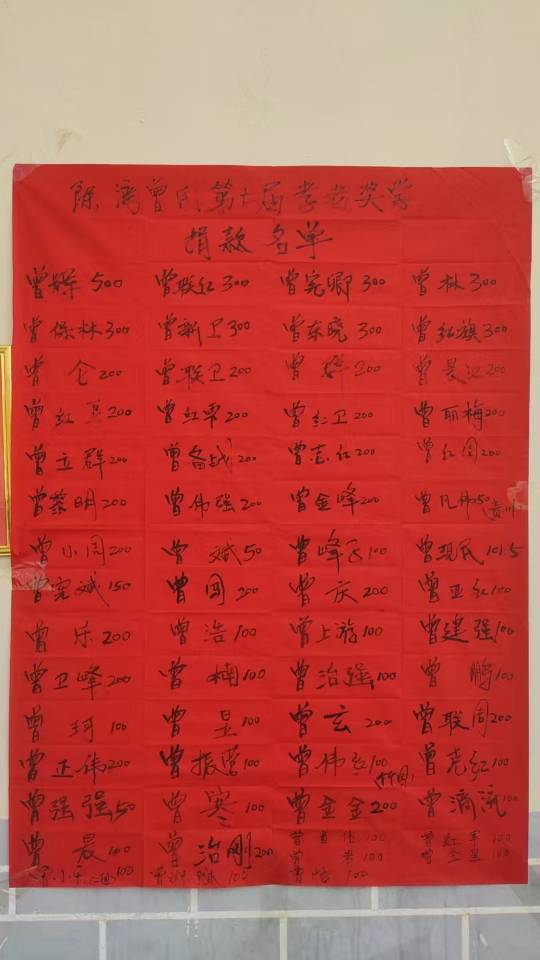 陈湾曾氏第十届孝老奖学
捐款名单
曾辉 500 曾联红 300 曾宪卿 300 曾林 300
曾保林 300 曾新卫 300 曾东晓 300 曾红旗 300
曾仑 200 曾联卫 200 曾 200 曾晨江 200
曾红 200 曾红军 200 曾卫 200 曾丽梅 200
曾立群 200 曾备战 200 曾志红 200 曾红周 200
曾黎明 200 曾伟强 200 曾金峰 200 曾凡伟 250 (贵州
曾小周 200 曾斌 50 曾峰 100 曾现民 101.5
曾宪斌 150 曾国 200 曾庆 200 曾亚红 100
曾乐 200 曾浩 100 曾上游 100 曾建强 100
曾卫峰 200 曾楠 100 曾治强 100 曾鹏 100
曾珂 100 曾昱 100 曾玄 200 曾联周 200
曾正伟 200 曾振营 100 曾伟红 100 曾志红 100
曾强强 50 曾寒 100 曾金金 200 曾满流 100
曾晨 100 曾治刚 200 曾伟 100 曾红军 100
曾 100 曾 100
100 曾 100 曾恬 100